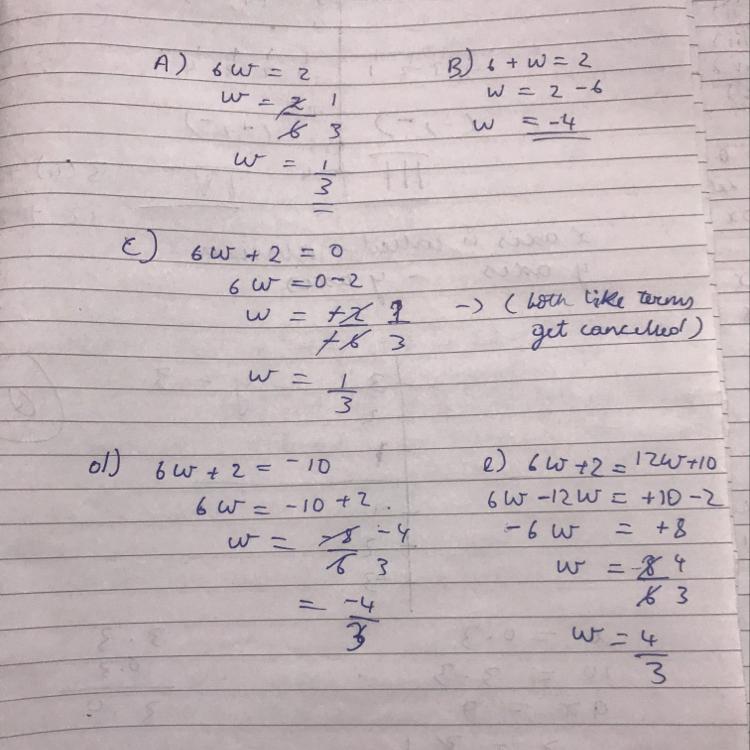 A) 6W = 2
W = 2 1
6 3
W = 1
3
B) 6 + W = 2
W = 2 - 6
W = -4
C) 6W + 2 = 0
6W = 0-2
W = +2 1 -> (both like terms
+6 3 get cancelled)
W = 1
3
d) 6W + 2 = -10
6W = -10 + 2
W = -8 -4
6 3
= -4
3
e) 6W + 2 = 12W + 10
6W - 12W = +10 - 2
-6W = +8
W = -8 4
6 3
W = 4
3